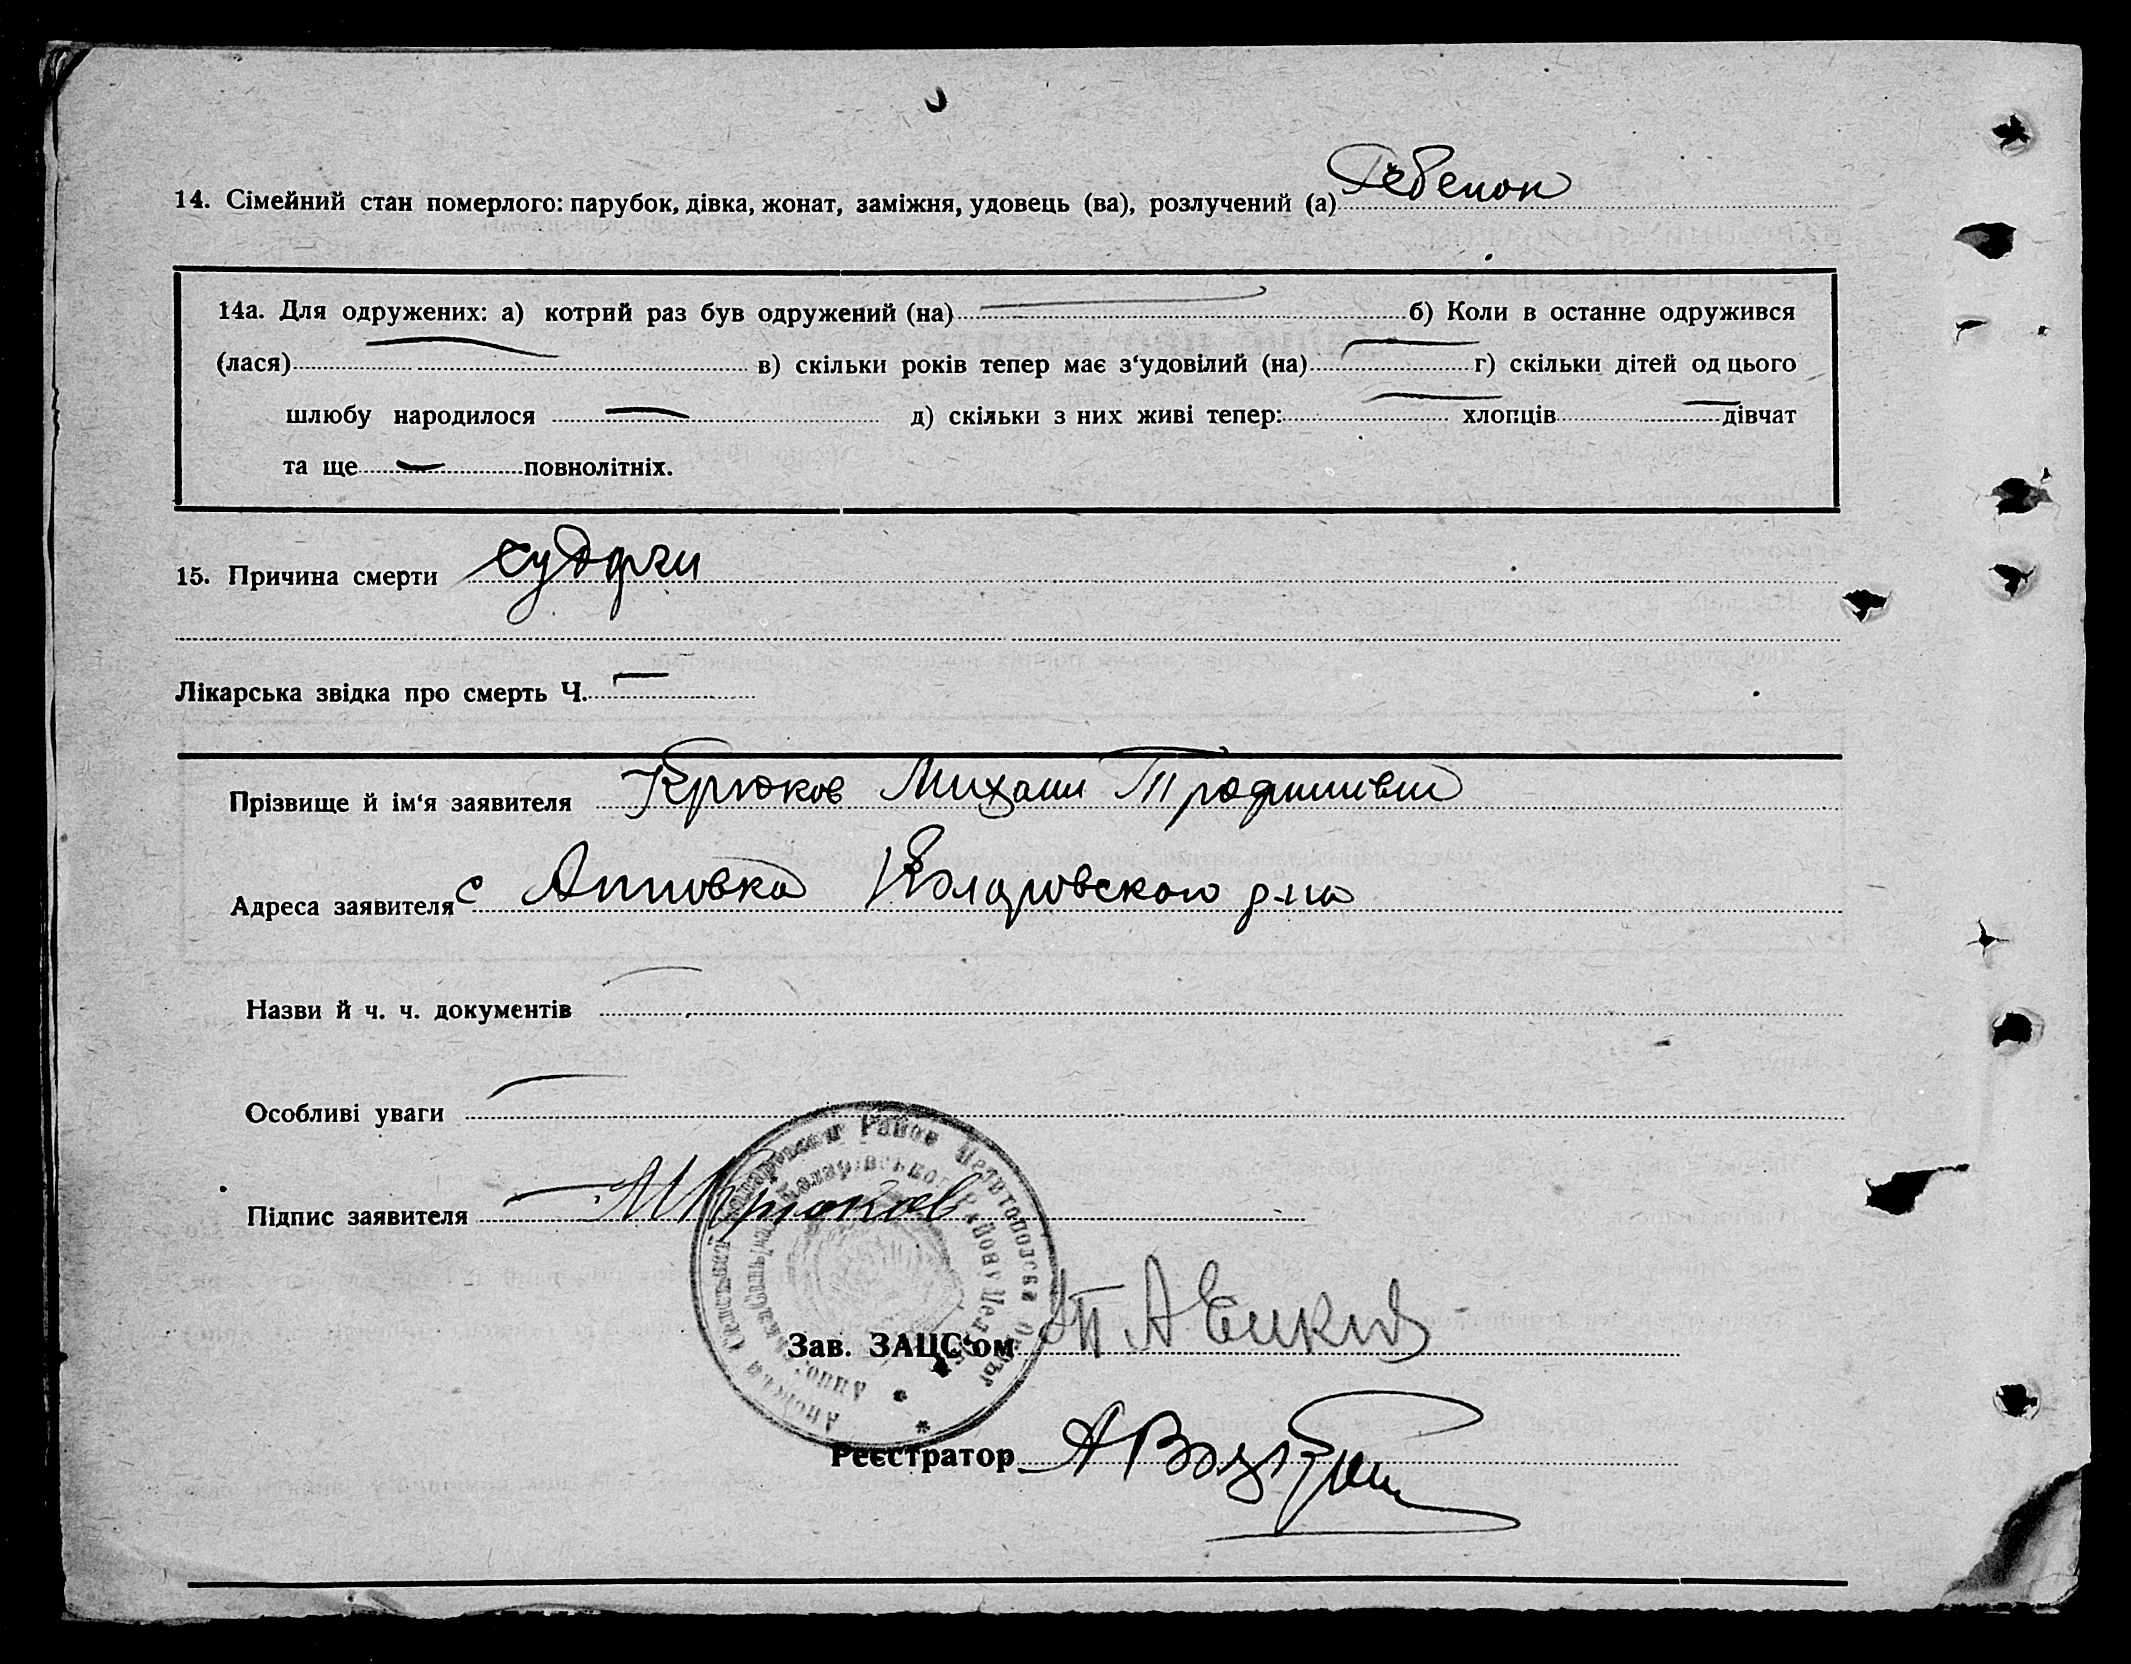 14. Сімейний стан померлого: парубок, дівка, жонат, заміжня, удовець (ва), розлучений (а) Ребенок
14а. Для одружених: а) котрий раз був одружений (на) б) Коли в останне одружився
(лася) в) скільки років тепер має з‘удовілий (на) г) скільки дітей од цього
шлюбу народилося д) скільки з них живі тепер: хлопців дівчат
та ще повнолітніх.
15. Причина смерти судорги
Лікарська звідка про смерть Ч.
Прізвище й ім‘я заявителя Крюков Михаил
Адреса заявителя с Аповка Коларовского р-на
Назви й ч. ч. документів
Особливі уваги
Підпис заявителя МКрюков
Зав. ЗАЦС‘ом
Реєстратор